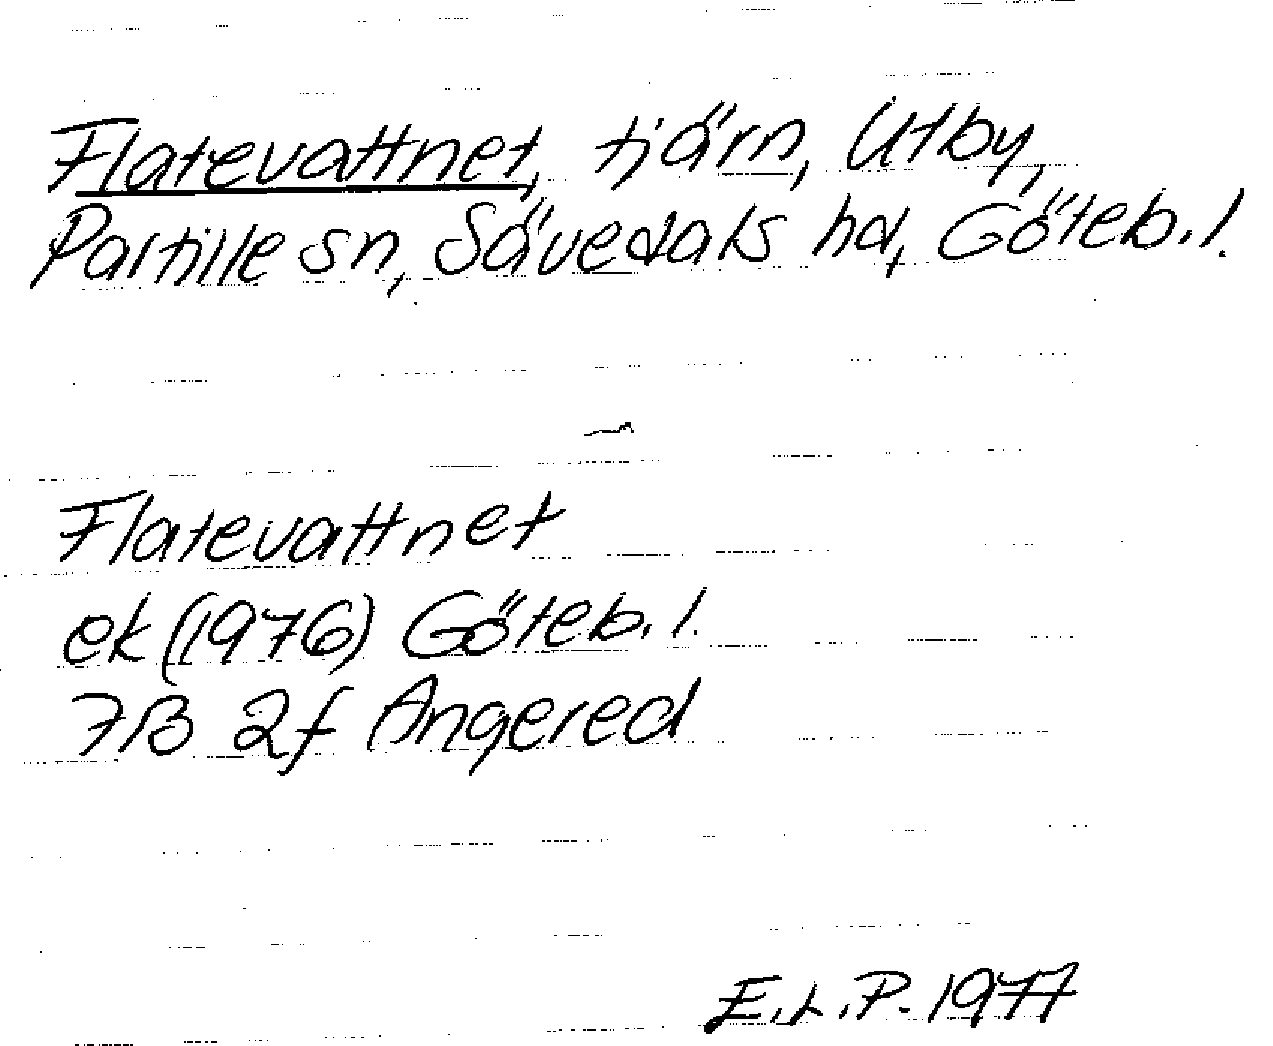 Flatevattnet, tjärn, Utby,
Partille sn, Sävedals hd, Göteb. l.
Flatevattnet
ek (1976) Göteb. l.
7B 2f Angered
E.L.P. 1977